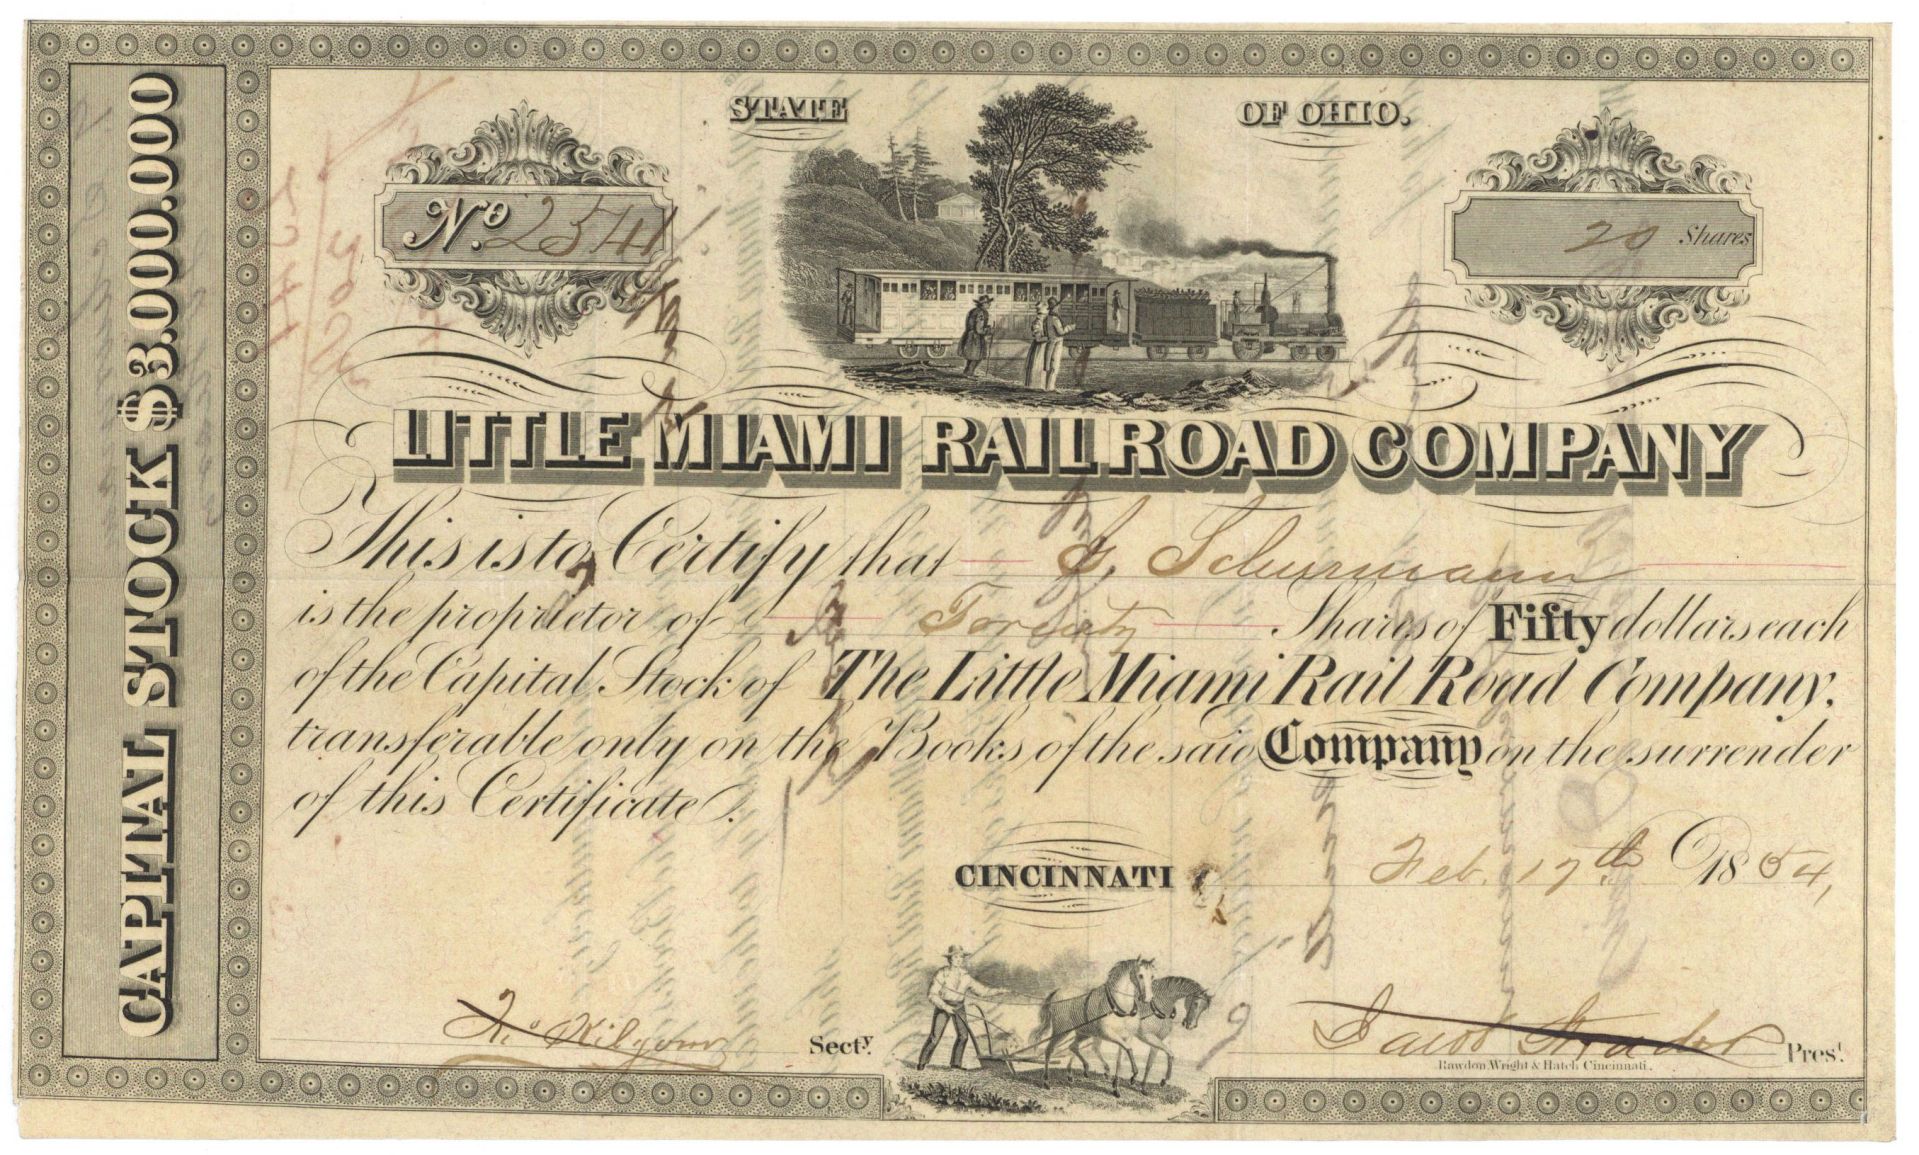 CAPITAL STOCK $3.000.000
STATE OF OHIO.
No. 2541
20 Shares
LITTLE MIAMI RAILROAD COMPANY
This is to Certify that S. Schurmann
is the proprietor of Twenty Shares of Fifty dollars each
of the Capital Stock of The Little Miami Rail Road Company,
transferable only on the Books of the said Company on the surrender
of this Certificate.
CINCINNATI Feb. 17th 1854,
Secty.
Jacob Strader Prest.
Rawdon, Wright & Hatch Cincinnati.